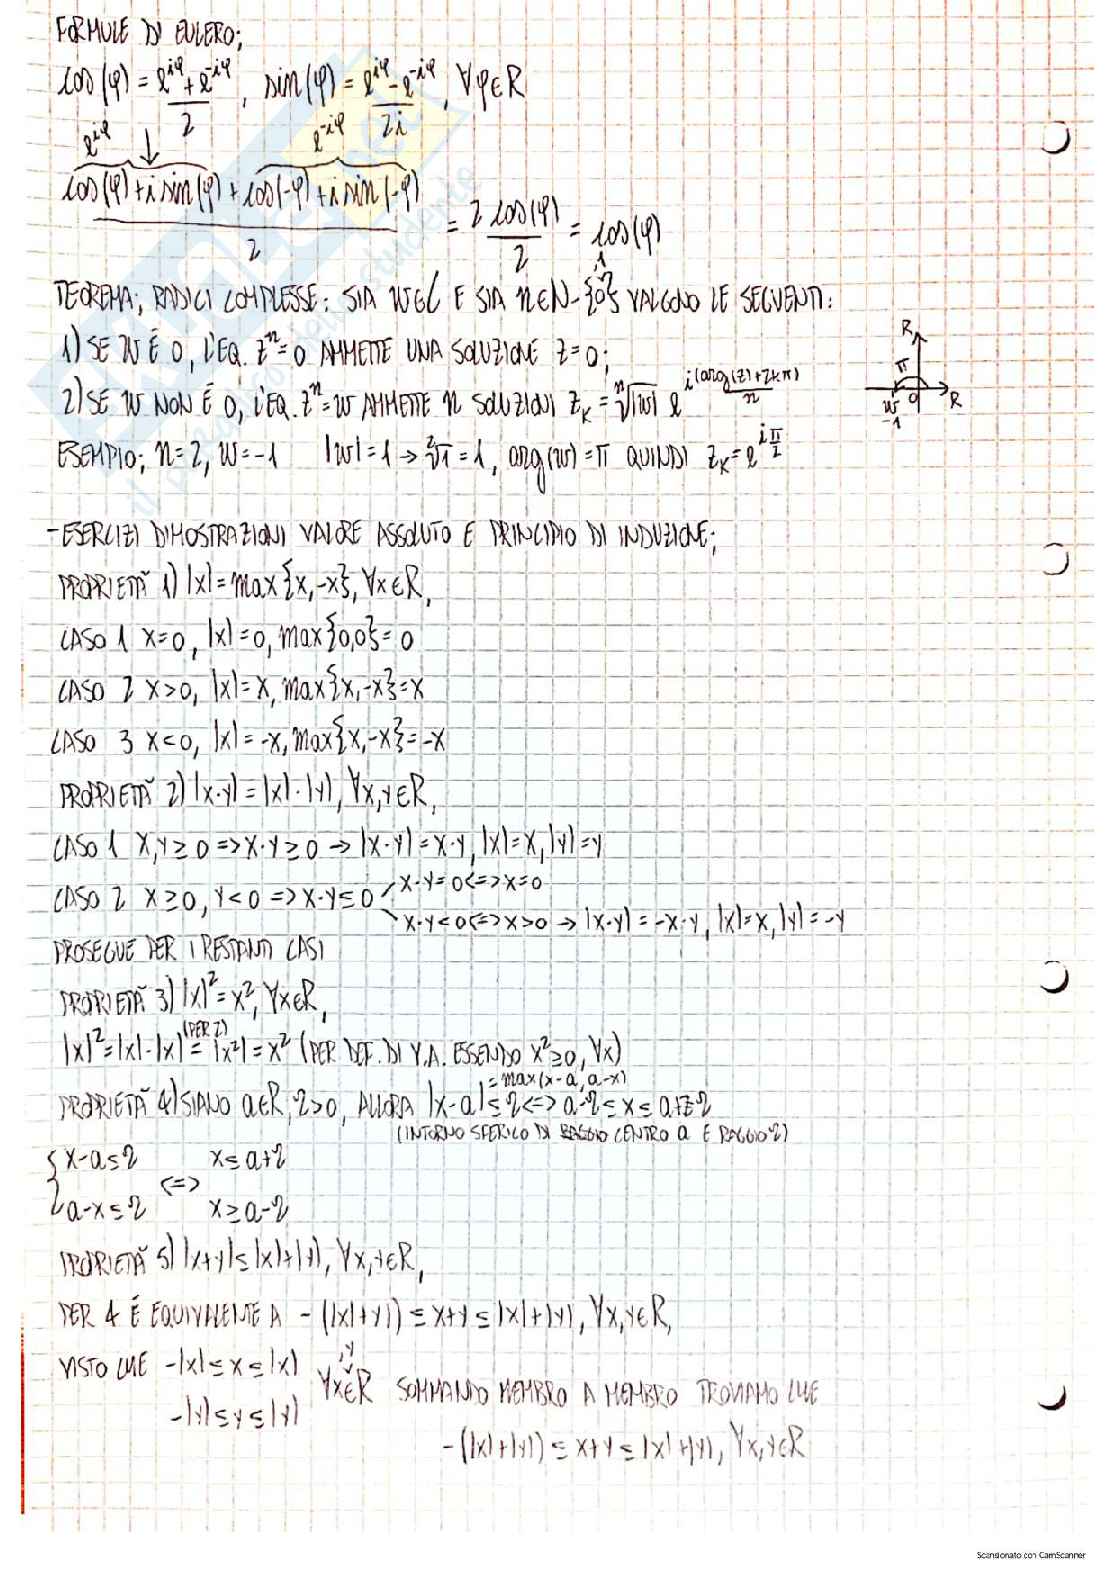 FORMULE DI EULERO;
cos(φ) = (e^{iφ} + e^{-iφ})/2, sin(φ) = (e^{iφ} - e^{-iφ})/2i, ∀φ∈R
e^{iφ} ↓ e^{-iφ}
(cos(φ) + i sin(φ) + cos(-φ) + i sin(-φ))/2 = 2cos(φ)/2 = cos(φ)
TEOREMA; RADICI COMPLESSE: SIA W∈C E SIA n∈N-{0}, VALGONO LE SEGUENTI:
1) SE W È 0, L'EQ. Z^n=0 AMMETTE UNA SOLUZIONE Z=0;
2) SE W NON È 0, L'EQ. Z^n=W AMMETTE n SOLUZIONI Z_K = ⁿ√|W| e^{i(arg(Z)+2kπ)/n}
R π W 0 R -1
ESEMPIO; n=2, W=-1 |W|=1 → ²√1=1, arg(W)=π QUINDI Z_K=e^{iπ/2}
- ESERCIZI DIMOSTRAZIONI VALORE ASSOLUTO E PRINCIPIO DI INDUZIONE;
PROPRIETÀ 1) |x|=max{x,-x}, ∀x∈R,
CASO 1 x=0, |x|=0, max{0,0}=0
CASO 2 x>0, |x|=x, max{x,-x}=x
CASO 3 x<0, |x|=-x, max{x,-x}=-x
PROPRIETÀ 2) |x·y|=|x|·|y|, ∀x,y∈R,
CASO 1 x,y≥0 => x·y≥0 → |x·y|=x·y, |x|=x, |y|=y
CASO 2 x≥0, y<0 => x·y≤0 x·y=0<=>x=0
x·y<0<=>x>0 → |x·y|=-x·y, |x|=x, |y|=-y
PROSEGUE PER I RESTANTI CASI
PROPRIETÀ 3) |x|²=x², ∀x∈R,
|x|²=|x|·|x| =(PER 2) |x²|=x² (PER DEF. DI V.A. ESSENDO x²≥0, ∀x)
=max(x-a, a-x)
PROPRIETÀ 4) SIANO a∈R, r>0, ALLORA |x-a|≤r<=>a-r≤x≤a+r
(INTORNO SFERICO DI CENTRO a E RAGGIO r)
{x-a≤r x≤a+r
<=>
a-x≤r x≥a-r
PROPRIETÀ 5) |x+y|≤|x|+|y|, ∀x,y∈R,
PER 4 È EQUIVALENTE A -(|x|+y|) ≤ x+y ≤ |x|+|y|, ∀x,y∈R,
VISTO CHE -|x|≤x≤|x|
-|y|≤y≤|y| ∀x,y∈R SOMMANDO MEMBRO A MEMBRO TROVIAMO CHE
-(|x|+|y|) ≤ x+y ≤ |x|+|y|, ∀x,y∈R
Scansionato con CamScanner